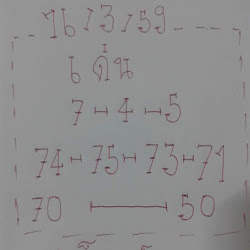 16/3/59
เด่น
7-4-5
74-75-73-71
70 — 50